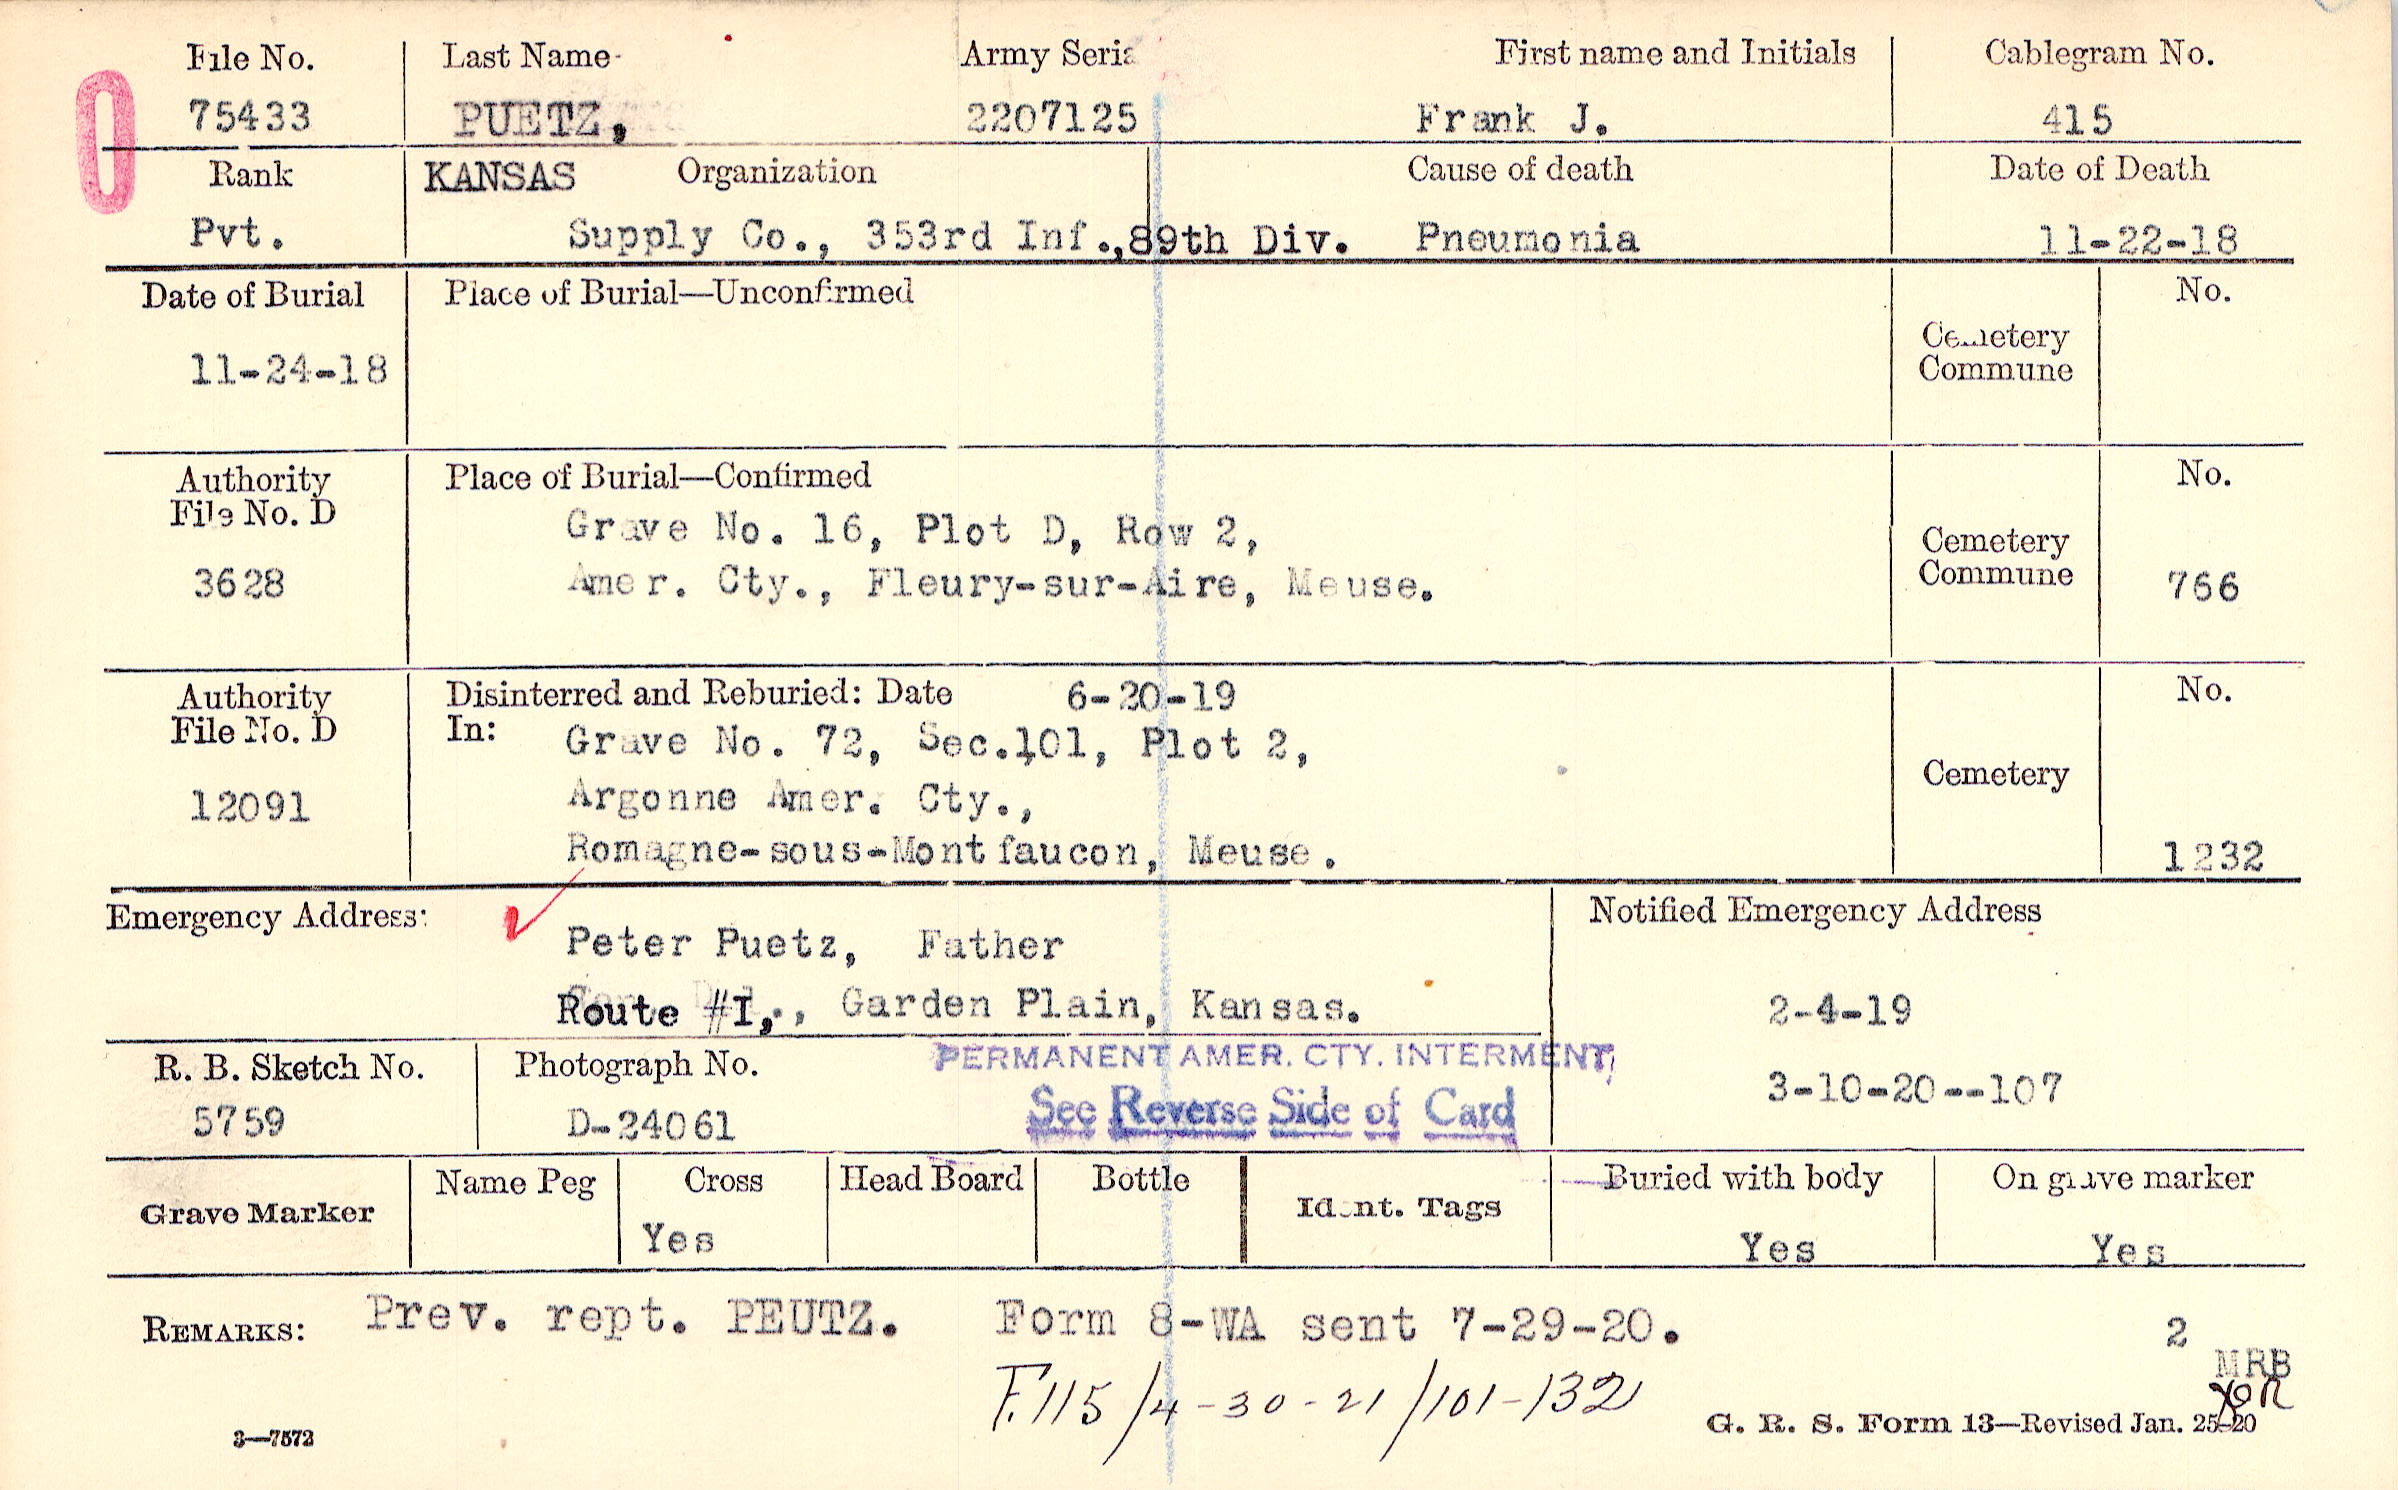 File No. Last Name Army Seria First name and Initials Cablegram No.
75433 PUETZ, 2207125 Frank J. 415
Rank KANSAS Organization Cause of death Date of Death
Pvt. Supply Co., 353rd Inf.,89th Div. Pneumonia 11-22-18
Date of Burial Place of Burial—Unconfirmed No.
11-24-18 Cemetery
Commune
Authority Place of Burial—Confirmed No.
File No. D Grave No. 16, Plot D, Row 2, Cemetery
3628 Amer. Cty., Fleury-sur-Aire, Meuse. Commune 766
Authority Disinterred and Reburied: Date 6-20-19 No.
File No. D In: Grave No. 72, Sec.101, Plot 2,
12091 Argonne Amer. Cty., Cemetery
Romagne-sous-Montfaucon, Meuse. 1232
Emergency Address: Notified Emergency Address
Peter Puetz, Father
Route #1,., Garden Plain, Kansas. 2-4-19
R. B. Sketch No. Photograph No. PERMANENT AMER. CTY. INTERMENT
3-10-20--107
5759 D-24061 See Reverse Side of Card
Grave Marker Name Peg Cross Head Board Bottle Ident. Tags Buried with body On grave marker
Yes Yes Yes
REMARKS: Prev. rept. PEUTZ. Form 8-WA sent 7-29-20. 2
MRB
F.115/4-30-21/101-132
3—7572 G. R. S. Form 13—Revised Jan. 25-20